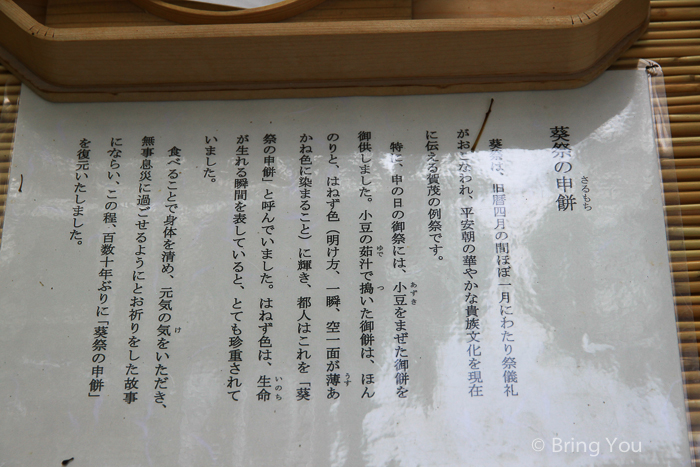 葵祭の申餅
さるもち
葵祭は、旧暦四月の間ほぼ一月にわたり祭儀礼
がおこなわれ、平安朝の華やかな貴族文化を現在
に伝える賀茂の例祭です。
特に、申の日の御祭には、小豆をまぜた御餅を
あずき
御供しました。小豆の茹汁で搗いた御餅は、ほん
ゆで つ
のりと、はねず色（明け方、一瞬、空一面が薄あ
うす
かね色に染まること）に輝き、都人はこれを「葵
祭の申餅」と呼んでいました。はねず色は、生命
いのち
が生れる瞬間を表していると、とても珍重されて
いました。
食べることで身体を清め、元気の気をいただき、
け
無事息災に過ごせるようにとお祈りをした故事
にならい、この程、百数十年ぶりに「葵祭の申餅」
を復元いたしました。
© Bring You